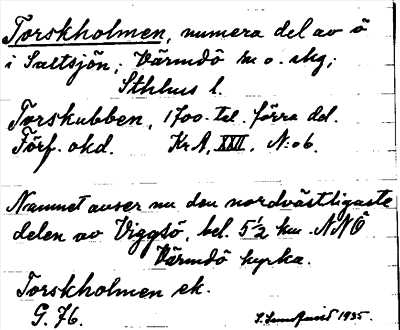 Torskholmen, numera del av ö
i Saltsjön; Värmdö sn o. shg;
Sthlms l.
Torskubben, 1700-tal. förra del.
Förf. okd. KrA, XXII, N:o 6.
Namnet avser nu den nordvästligaste
delen av Viggsö, bel. 5 1/2 km. NNÖ
Värmdö kyrka.
Torskholmen ek.
G. 76.
1935.